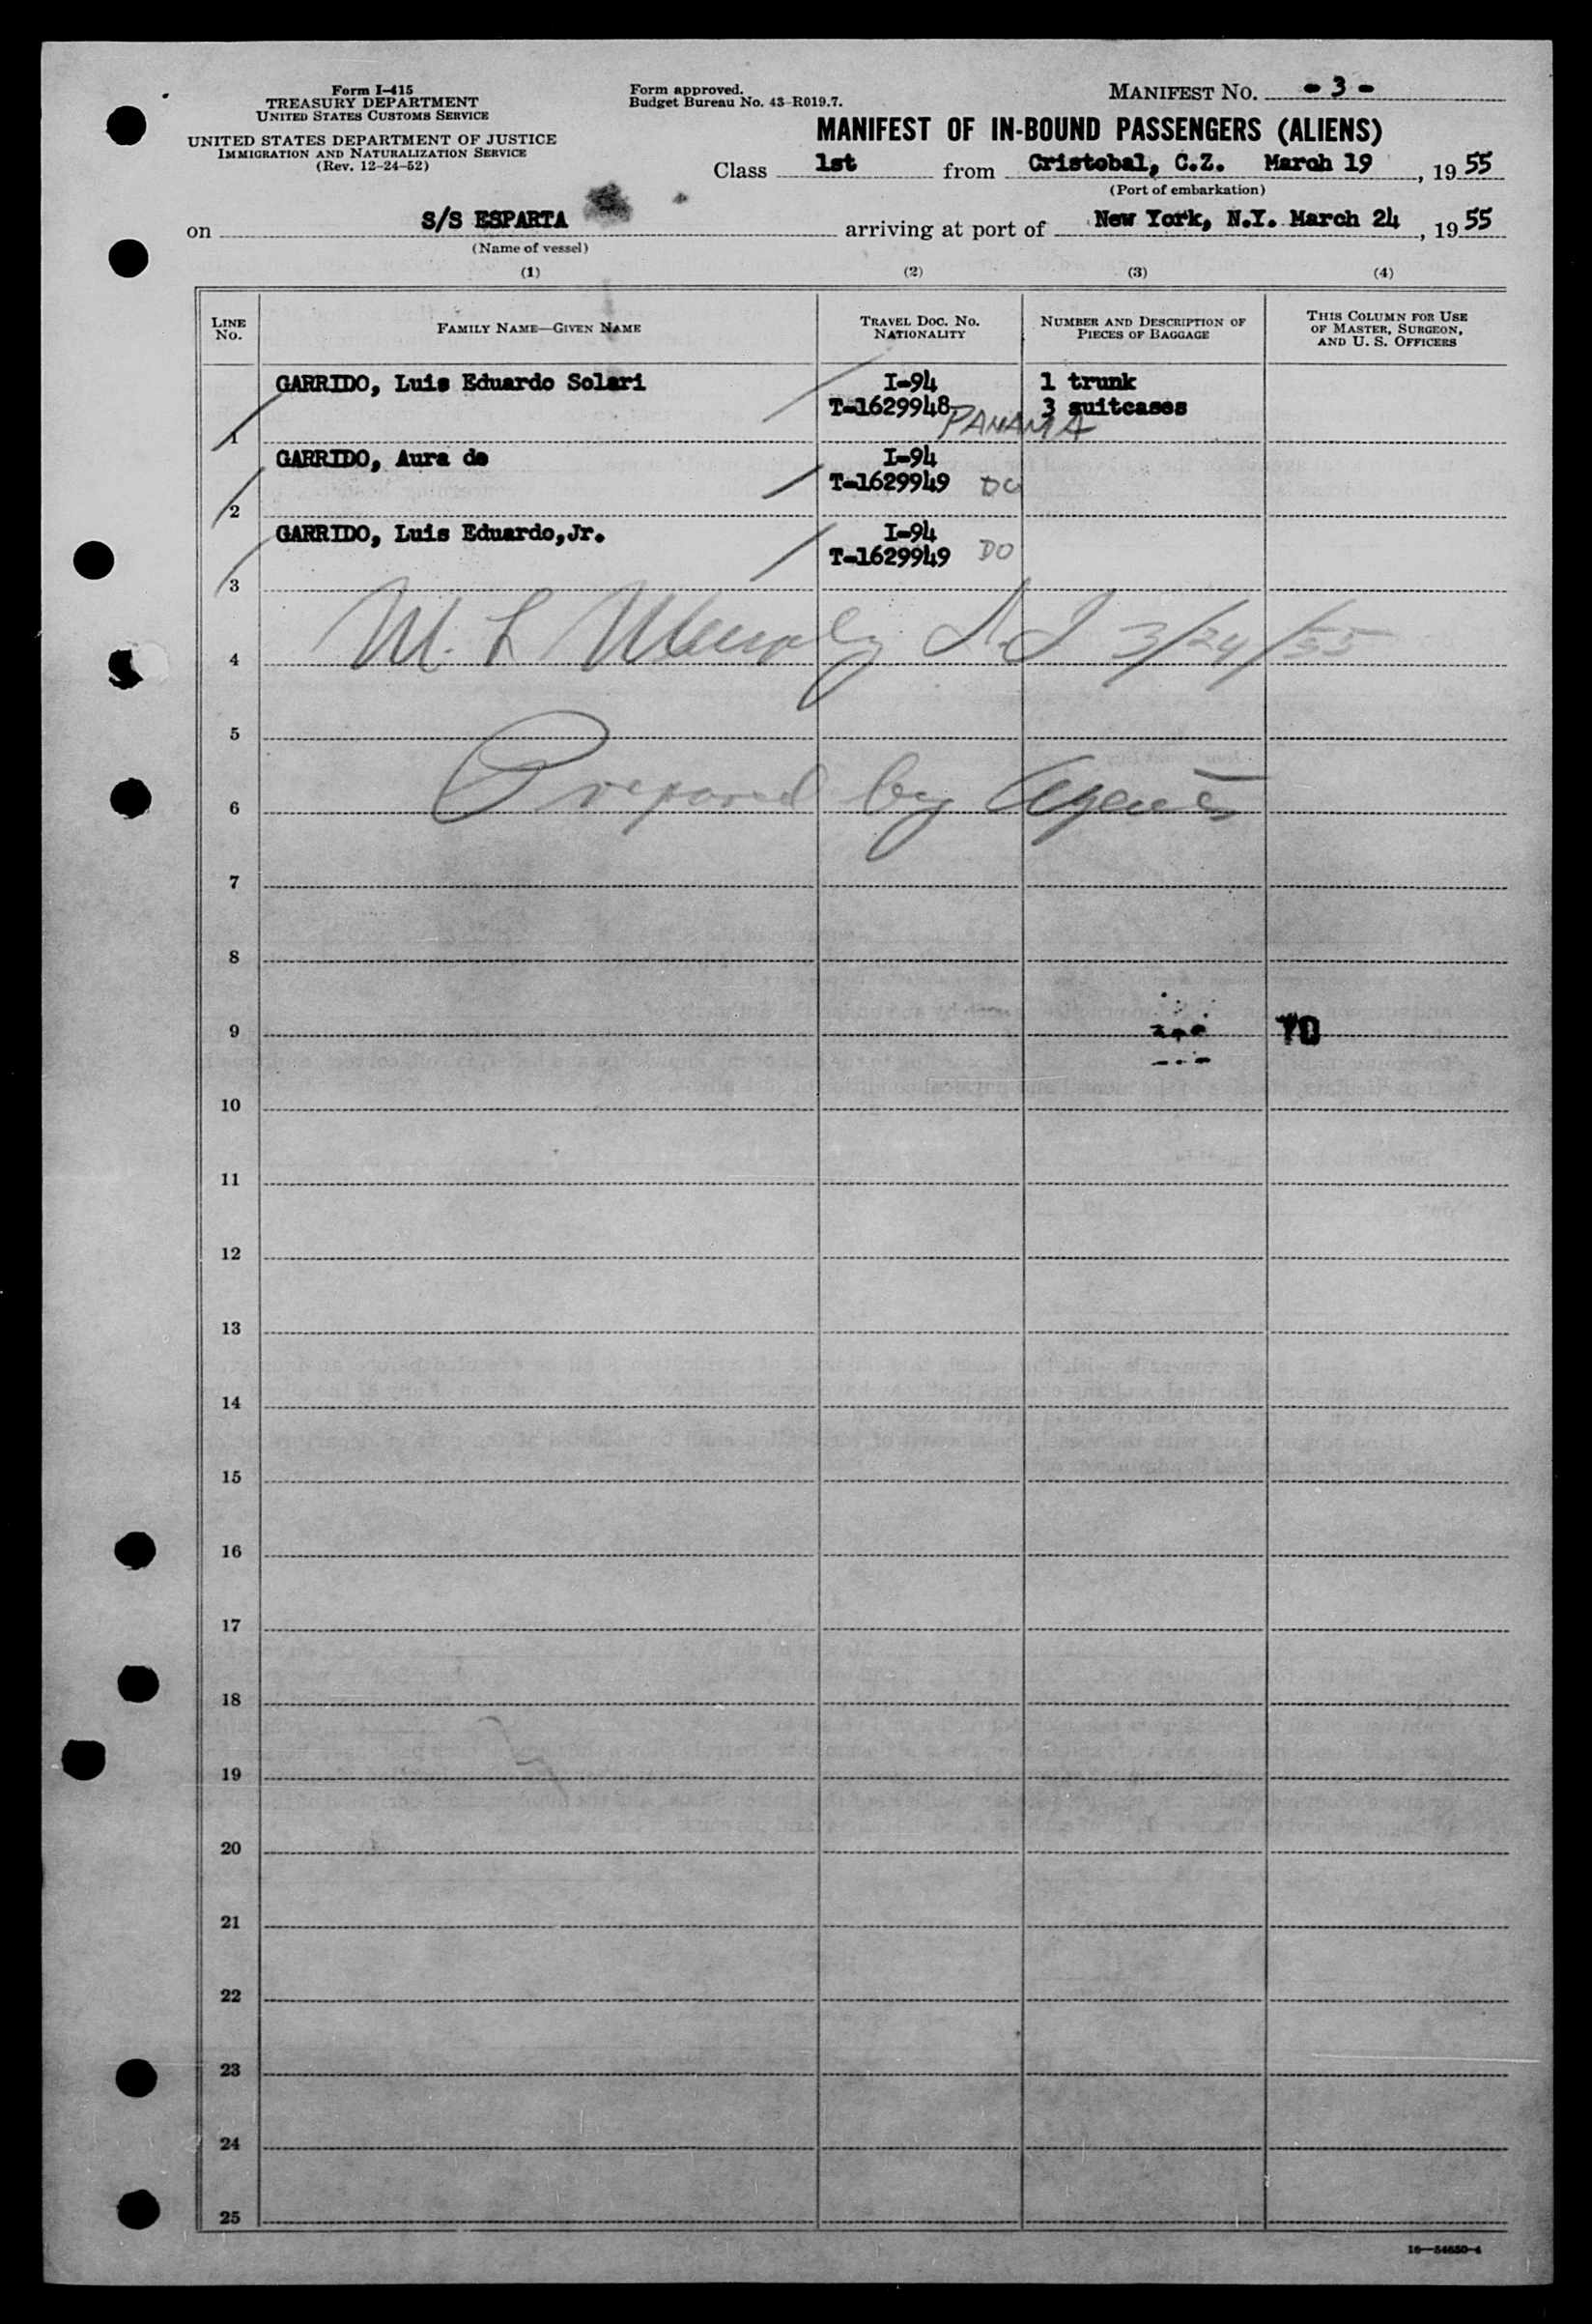 Form I-415
TREASURY DEPARTMENT
UNITED STATES CUSTOMS SERVICE
UNITED STATES DEPARTMENT OF JUSTICE
IMMIGRATION AND NATURALIZATION SERVICE
(Rev. 12-24-52)
Form approved.
Budget Bureau No. 43-R019.7.
MANIFEST NO. - 3 -
MANIFEST OF IN-BOUND PASSENGERS (ALIENS)
Class 1st from Cristobal, C.Z. March 19, 1955
(Port of embarkation)
on S/S ESPARTA arriving at port of New York, N.Y. March 24, 1955
(Name of vessel)
(1) (2) (3) (4)
LINE No. FAMILY NAME—GIVEN NAME TRAVEL DOC. NO. NATIONALITY NUMBER AND DESCRIPTION OF PIECES OF BAGGAGE THIS COLUMN FOR USE OF MASTER, SURGEON, AND U. S. OFFICERS
GARRIDO, Luis Eduardo Solari I-94 1 trunk
T-1629948 3 suitcases
1 PANAMA
GARRIDO, Aura de I-94
T-1629949 DO
2
GARRIDO, Luis Eduardo,Jr. I-94
T-1629949 DO
3
M. L 3/24/55
4
5
Prepared by Agents
6
7
8
9 TO
10
11
12
13
14
15
16
17
18
19
20
21
22
23
24
25
16—54650-4